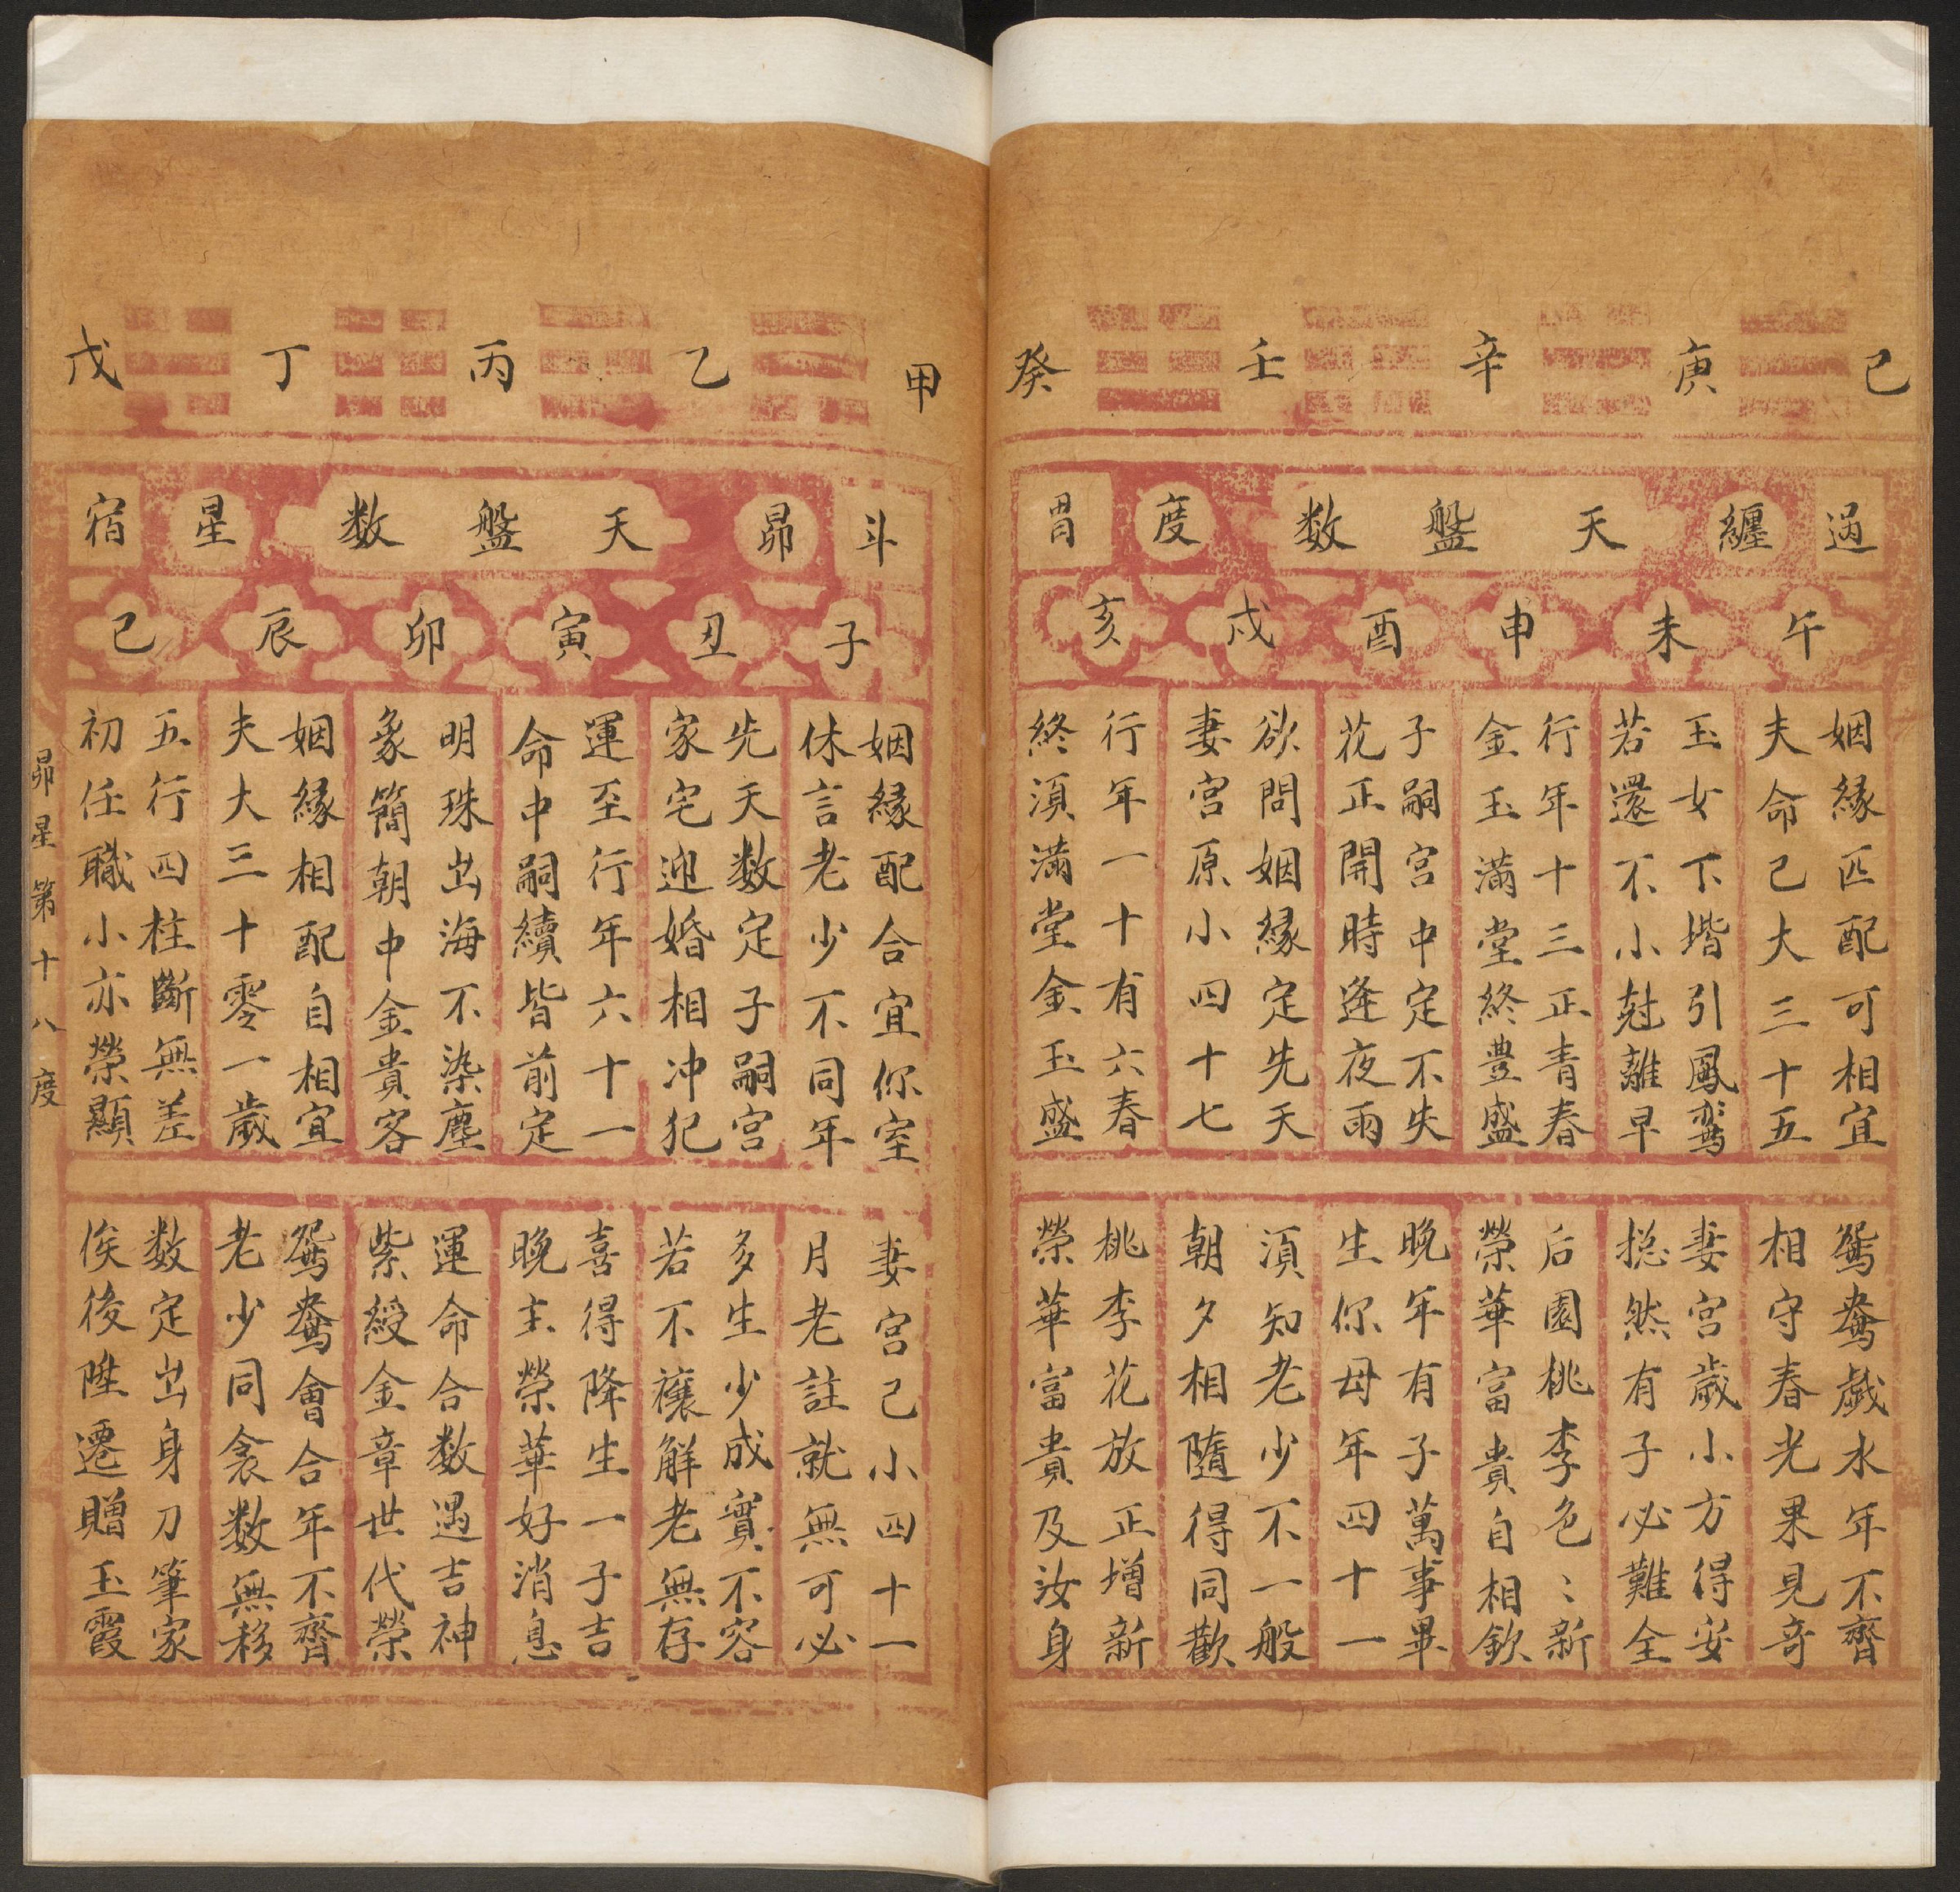 己 庚 辛 壬 癸
過 纏 天盤数 度 胃
午 未 申 酉 戌 亥
姻緣匹配可相宜
夫命己大三十五
玉女下堦引鳳鸞
若還不小尅離早
行年十三正青春
金玉滿堂終豊盛
子嗣宮中定不失
花正開時逢夜雨
欲問姻緣定先天
妻宮原小四十七
行年一十有六春
終須滿堂金玉盛
鴛鴦戲水年不齊
相守春光果見竒
妻宮歲小方得安
捴然有子必難全
后園桃李色〻新
榮華富貴自相欽
晚年有子萬事畢
生你母年四十一
須知老少不一般
朝夕相隨得同歡
桃李花放正增新
榮華富貴及汝身
甲 乙 丙 丁 戊
斗 昴 天盤数 星 宿
子 丑 寅 卯 辰 巳
姻緣配合宜你室
休言老少不同年
先天数定子嗣宮
家宅迎婚相冲犯
運至行年六十一
命中嗣續皆前定
明珠出海不染塵
象簡朝中金貴客
姻緣相配自相宜
夫大三十零一歲
五行四柱斷無差
初任職小亦榮顯
妻宮己小四十一
月老註就無可必
多生少成實不容
若不禳解老無存
喜得降生一子吉
晚主榮華好消息
運命合数遇吉神
紫綬金章世代榮
鴛鴦會合年不齊
老少同衾数無移
数定出身刀筆家
俟後陞遷贈玉霞
昴星第十八度